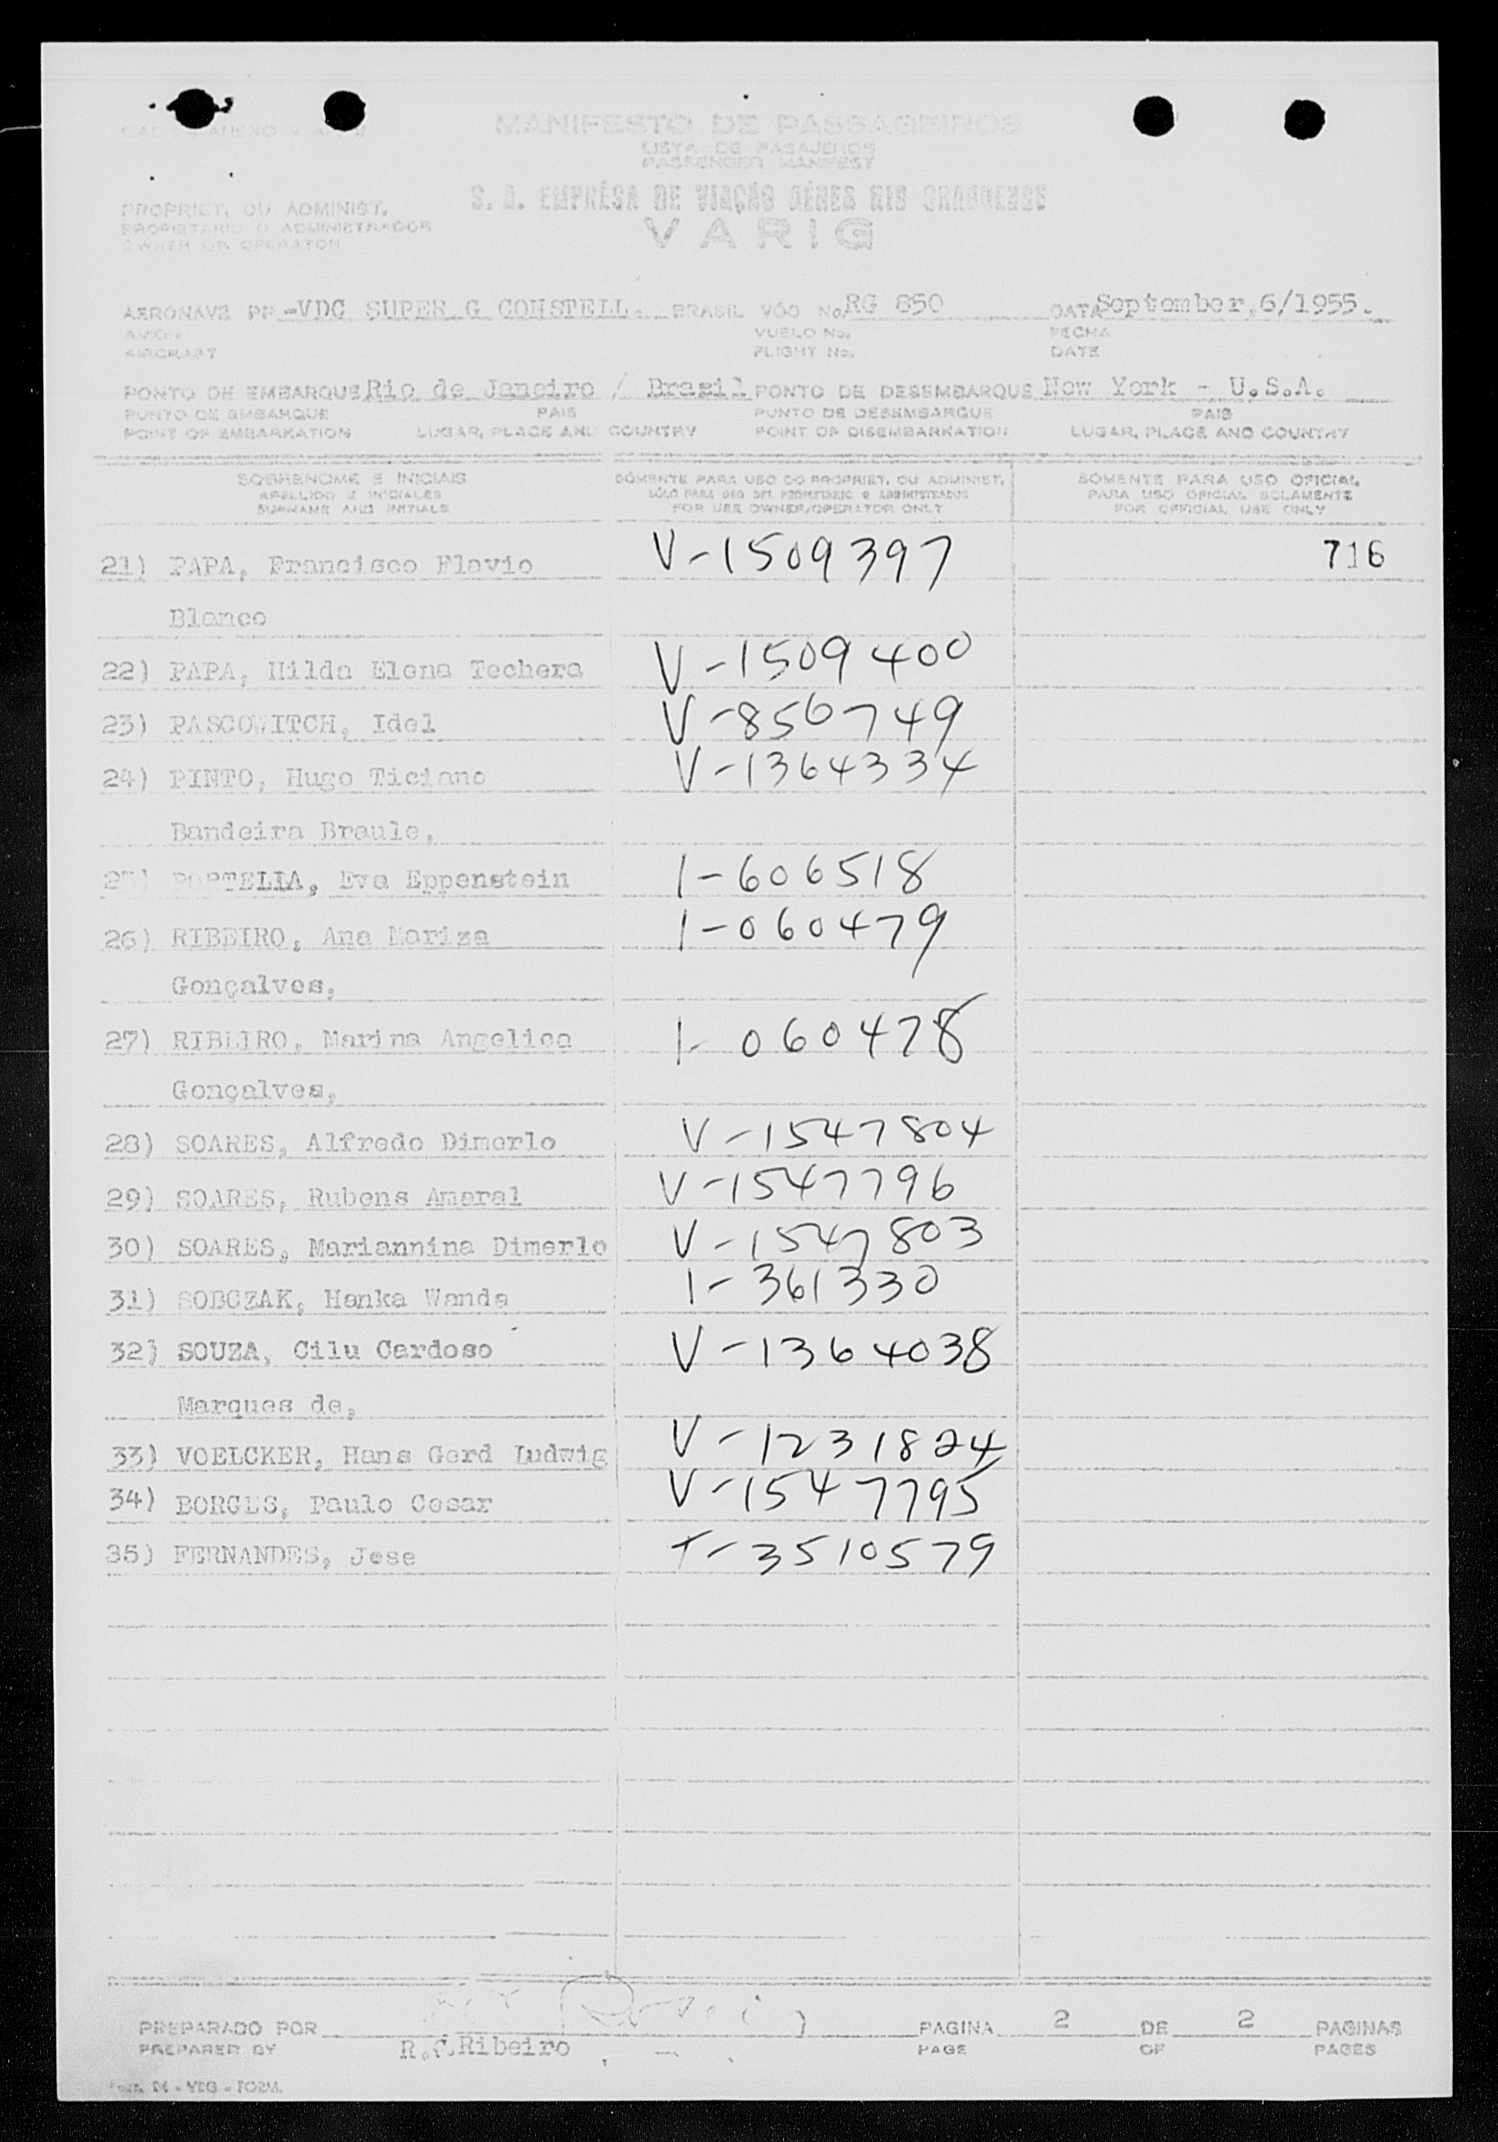 MANIFESTO DE PASSAGEIROS
LISTA DE PASAJEROS
PASSENGER MANIFEST
S. A. EMPRÊSA DE VIAÇÃO AÉREA RIO GRANDENSE
VARIG
PROPRIET. OU ADMINIST.
PROPIETARIO O ADMINISTRADOR
OWNER OR OPERATOR
AERONAVE PP -VDC SUPER G CONSTELL. BRASIL VÔO No. RG 850 DATA September, 6/1955.
AVION VUELO No. FECHA
AIRCRAFT FLIGHT No. DATE
PONTO DE EMBARQUE Rio de Janeiro / Brasil PONTO DE DESEMBARQUE New York - U.S.A.
PUNTO DE EMBARQUE PAIS PUNTO DE DESEMBARQUE PAIS
POINT OF EMBARKATION LUGAR, PLACE AND COUNTRY POINT OF DISEMBARKATION LUGAR, PLACE AND COUNTRY
SOBRENOME E INICIAIS SÓMENTE PARA USO DO PROPRIET. OU ADMINIST. SOMENTE PARA USO OFICIAL
APELLIDO E INICIALES SÓLO PARA USO DEL PROPIETARIO O ADMINISTRADOR PARA USO OFICIAL SOLAMENTE
SURNAME AND INITIALS FOR USE OWNER/OPERATOR ONLY FOR OFFICIAL USE ONLY
21) PAPA, Francisco Flavio V-1509397 716
Blanco
22) PAPA, Hilda Elena Techera V-1509400
23) PASCOWITCH, Idel V-856749
24) PINTO, Hugo Ticiano V-1364334
Bandeira Braule,
25) PORTELIA, Eva Eppenstein 1-606518
26) RIBEIRO, Ana Mariza 1-060479
Gonçalves,
27) RIBEIRO, Marina Angelica 1-060478
Gonçalves,
28) SOARES, Alfredo Dimerlo V-1547804
29) SOARES, Rubens Amaral V-1547796
30) SOARES, Mariannina Dimerlo V-1547803
31) SOBCZAK, Hanka Wanda 1-361330
32) SOUZA, Cilu Cardoso V-1364038
Marques de,
33) VOELCKER, Hans Gerd Ludwig V-1231824
34) BORGES, Paulo Cesar V-1547795
35) FERNANDES, Jese T-3510579
PREPARADO POR PAGINA 2 DE 2 PAGINAS
PREPARED BY R.C.Ribeiro PAGE OF PAGES